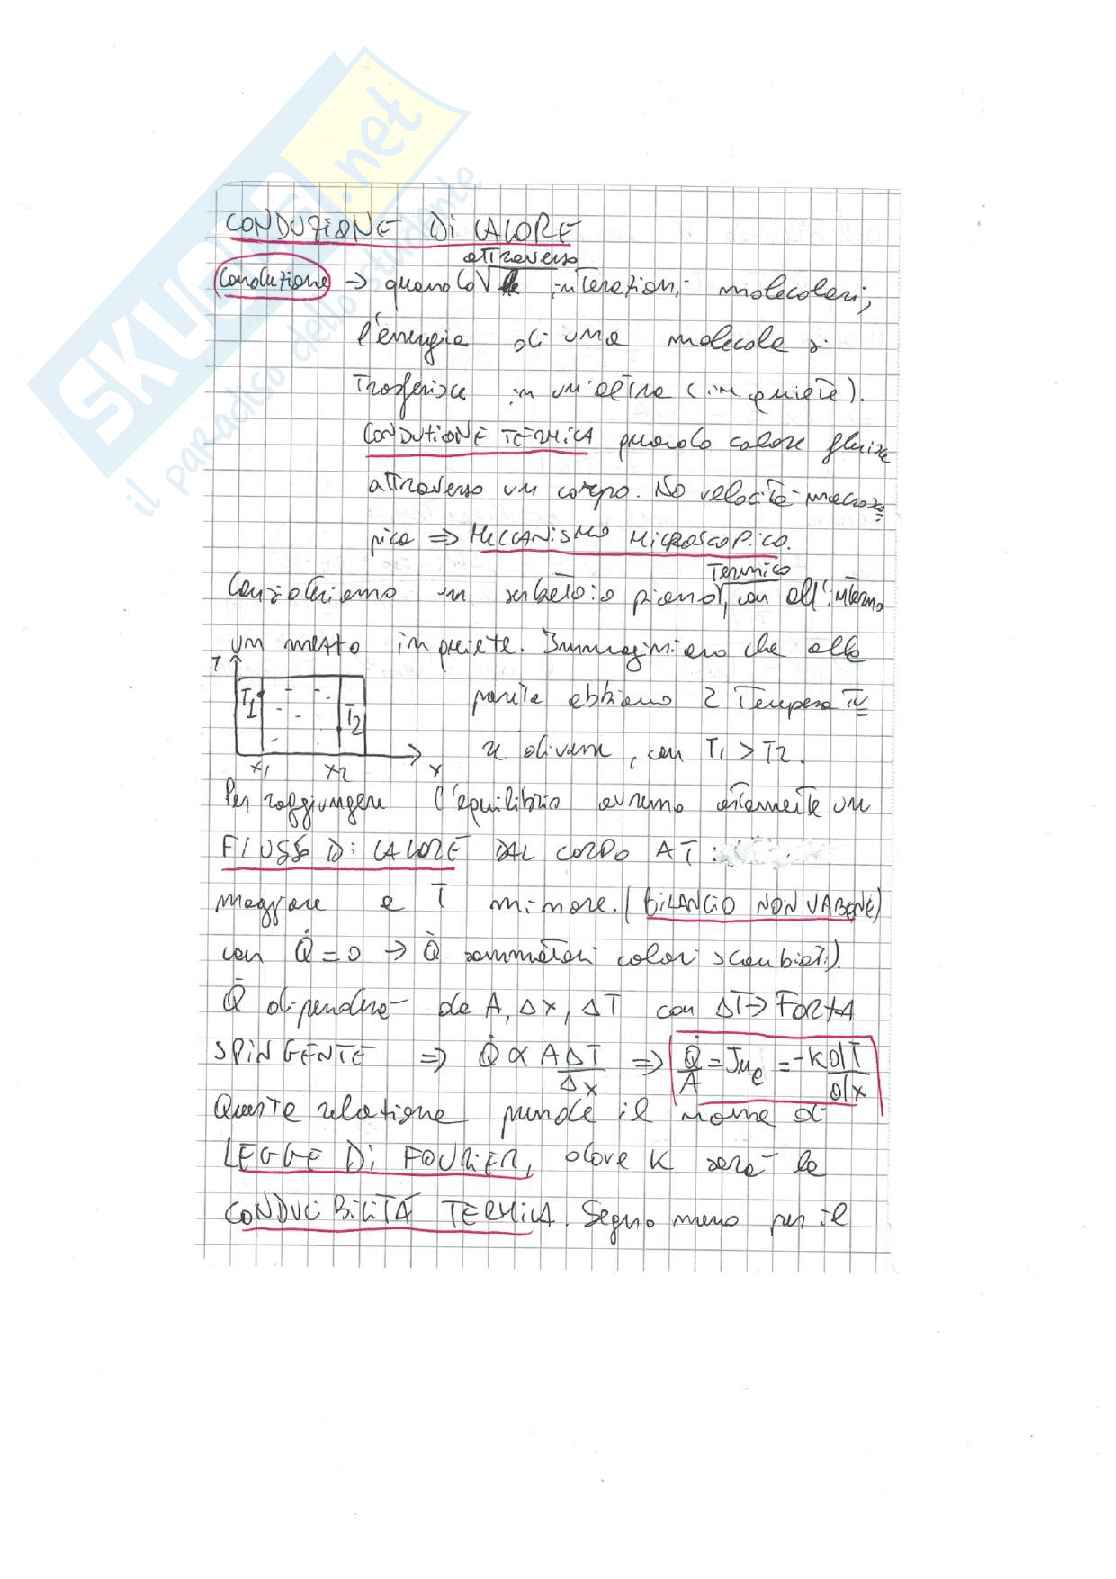 SKUOLA.net
il paradiso dello studente
CONDUZIONE DI CALORE
attraverso
Conduzione → quando le interazioni molecolari,
l'energia di una molecola si
trasferisce in un'altra (in quiete).
CONDUZIONE TERMICA quando calore fluisce
attraverso un corpo. No velocità macrosco=
pica ⇒ MECCANISMO MICROSCOPICO.
Termico
Consideriamo un serbatoio piano, con all'interno
un mezzo in quiete. Immaginiamo che alle
T
T1
T2
x1 x2 x
pareti abbiamo 2 Temperatu=
re diverse, con T1 > T2.
Per raggiungere l'equilibrio avremo certamente un
FLUSSO DI CALORE DAL CORPO A T:
maggiore e T minore. (BILANCIO NON VA BENE)
con Q̇ = 0 → Q̇ sommatori calori scambiati)
Q̇ dipenderà da A, Δx, ΔT con ΔT → FORZA
SPINGENTE ⇒ Q̇ ∝ A ΔT/Δx ⇒ Q̇/A = Jue = -k dT/dx
Questa relazione prende il nome di
LEGGE DI FOURIER, dove K sarà la
CONDUCIBILITÀ TERMICA. Segno meno per il